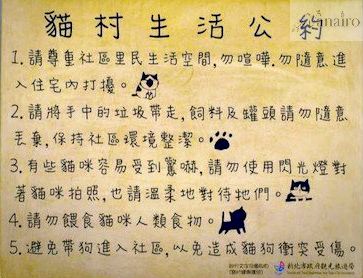 貓村生活公約
1.請尊重社區里民生活空間,勿喧嘩.勿隨意進
入住宅內打擾。
2.請將手中的垃圾帶走,飼料及罐頭請勿隨意
丟棄,保持社區環境整潔。
3.有些貓咪容易受到驚嚇,請勿使用閃光燈對
著貓咪拍照,也請溫柔地對待牠們。
4.請勿餵食貓咪人類食物。
5.避免帶狗進入社區,以免造成貓狗衝突受傷。
新北市政府觀光旅遊局